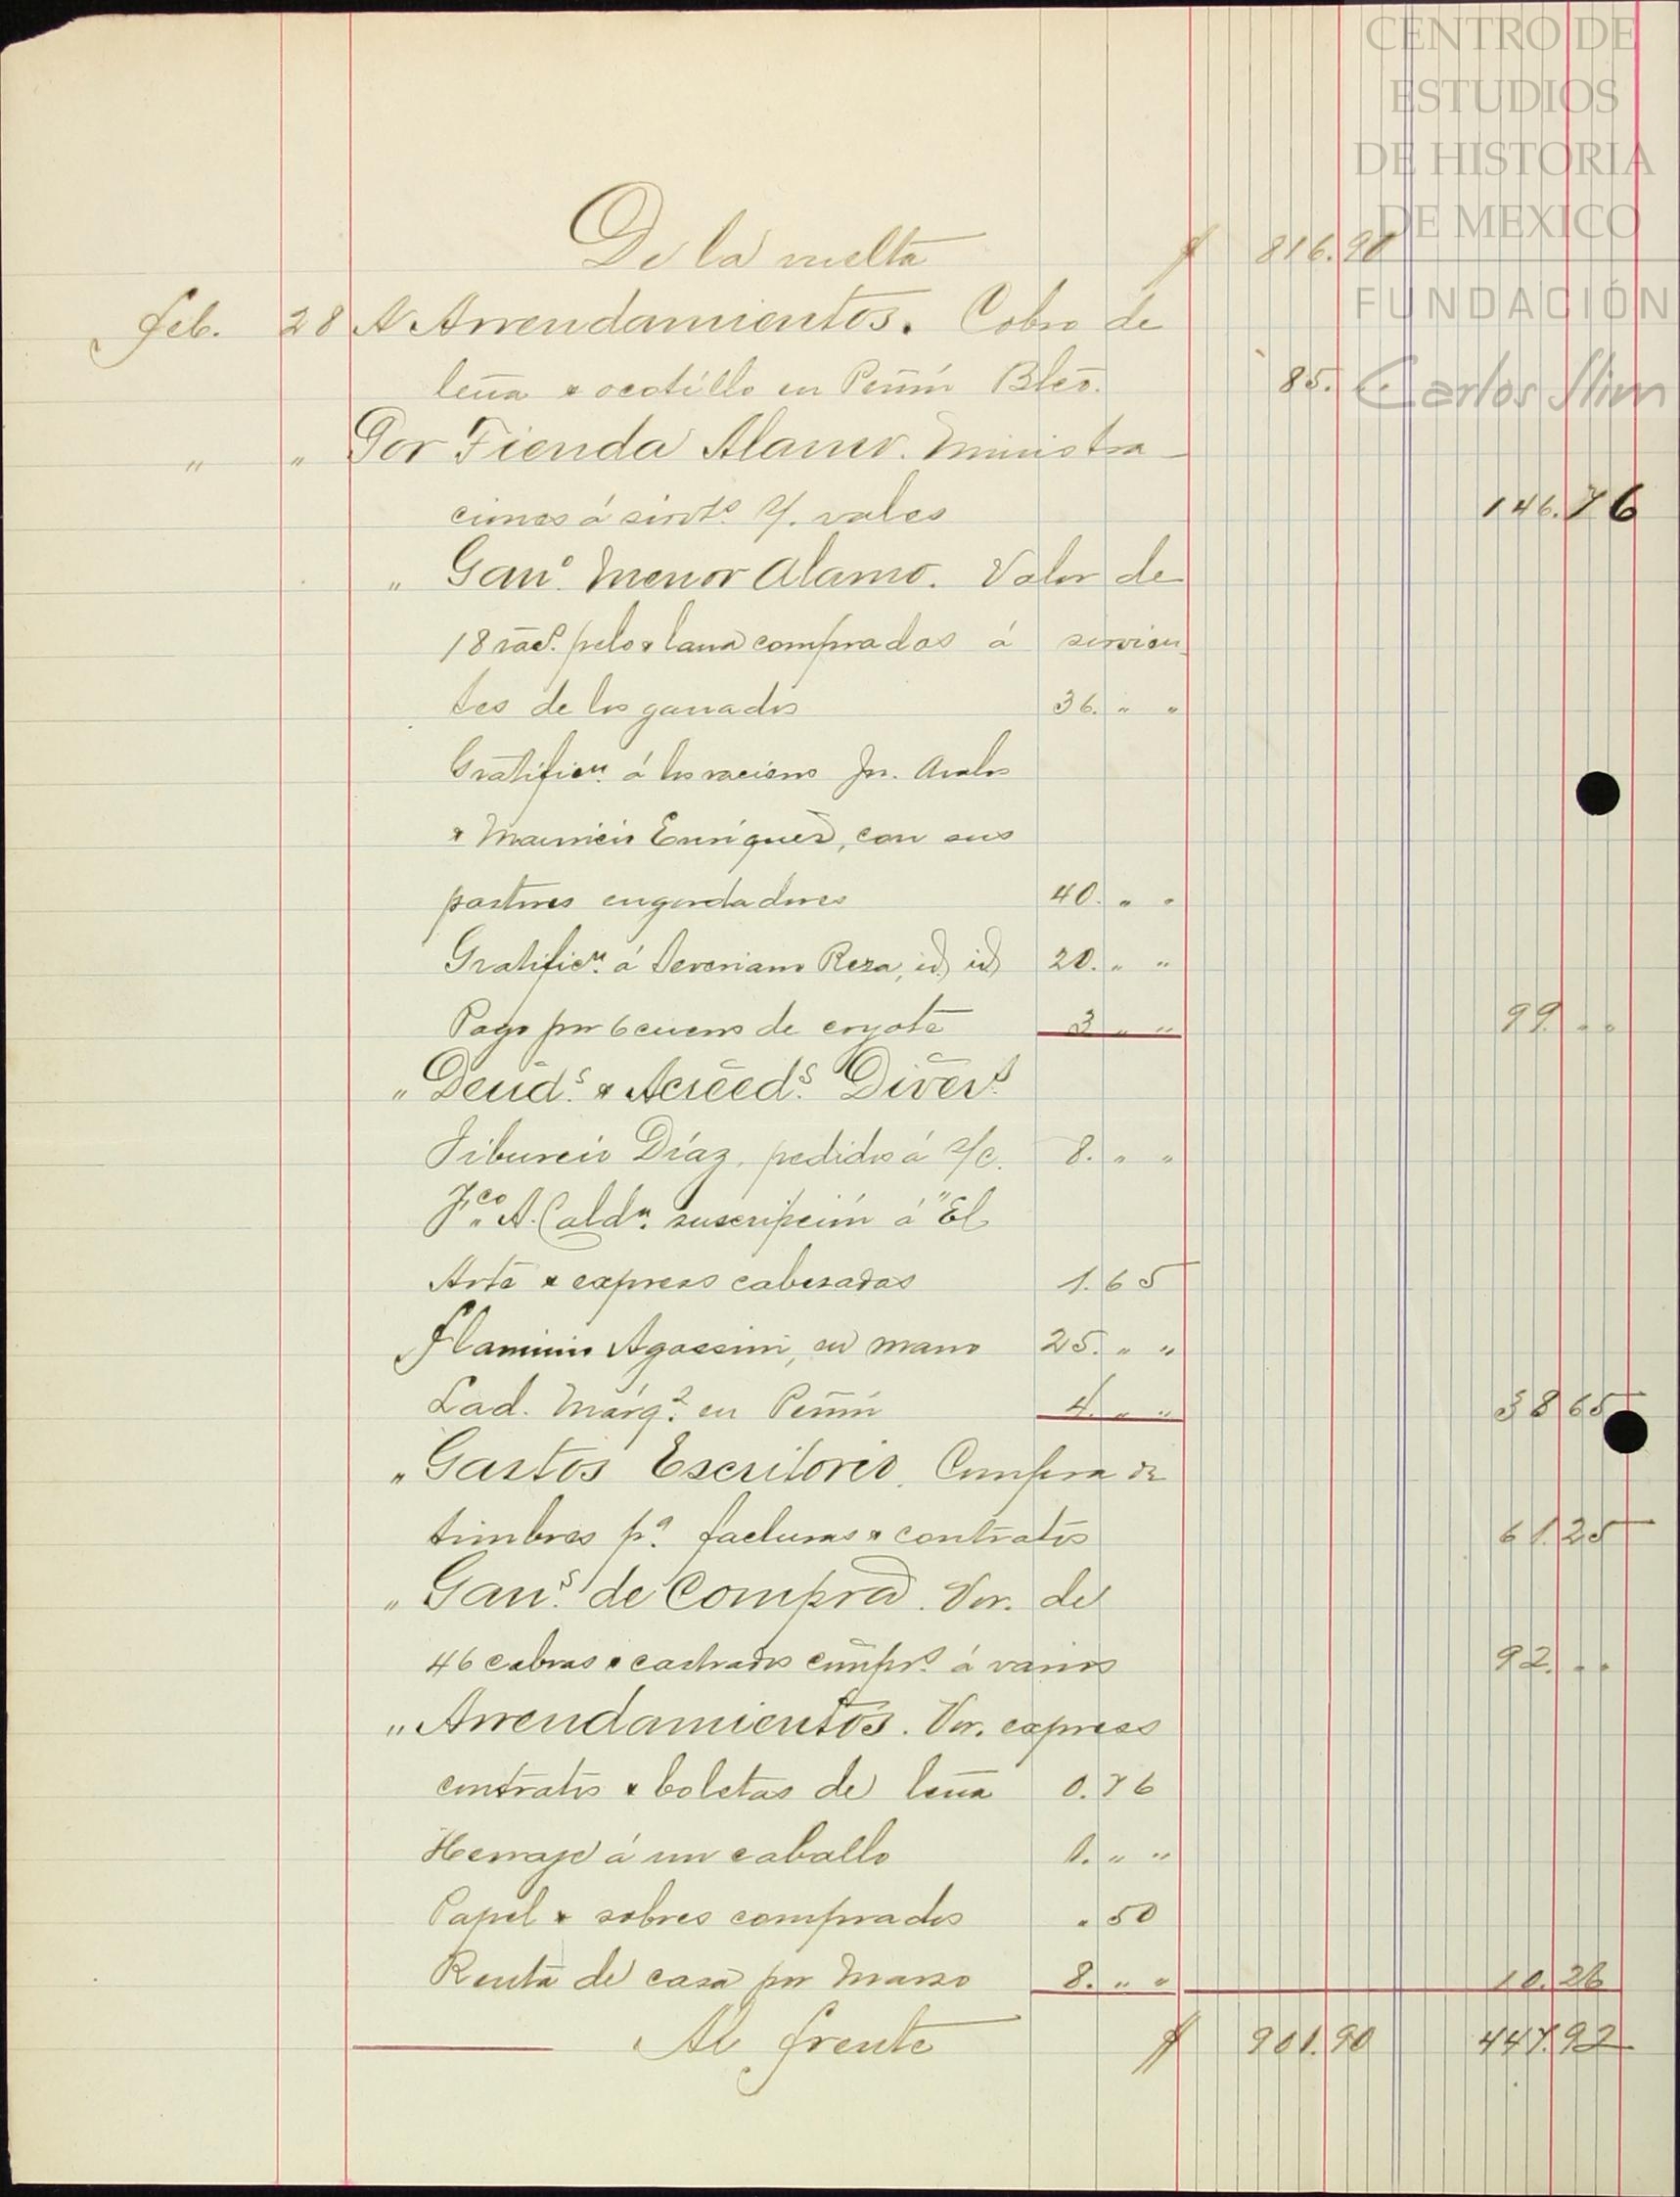 CENTRO DE
ESTUDIOS
DE HISTORIA
DE MEXICO
FUNDACIÓN
Carlos Slim
De la vuelta $ 816.90
Feb. 28 A Arrendamientos. Cobro de
leña & ocotillo en Peñón Blco. 85.
" " Por Tienda Alamo. Ministra-
ciones á sirvtes. s/. vales 146.76
" Gano. Menor Alamo. Valor de
18 racs. pelo & lana comprados á sirvien-
tes de los ganados 36. " "
Gratificn. á los racions Jn. Avalos
& Mauricio Enríquez, con sus
pastores engordadores 40. " "
Gratificn. á Severiano Reza, id. id. 20. " "
Pago por 6 cueros de coyote 3 " " 99. " "
" Deuds. & Acreeds. Divers.
Tiburcio Díaz, pedidos á s/c. 8. " "
Fco. A. Caldn. suscripción á "El
Arte & express cabezadas 1.65
Flaminio Agassini, en mano 25. " "
Lad. Márqz. en Peñón 4. " " 38 65
" Gastos Escritorio. Compra de
timbres pa. facturas & contratos 61.25
" Gans. de Compra. Vor. de
46 cabras & castrados comprs. á varios 92. " "
" Arrendamientos. Vor. express
contratos & boletas de leña 0.76
Herraje á un caballo 1. " "
Papel & sobres comprados " 50
Renta de casa por Marzo 8. " " 10.26
Al frente $ 901.90 447.92